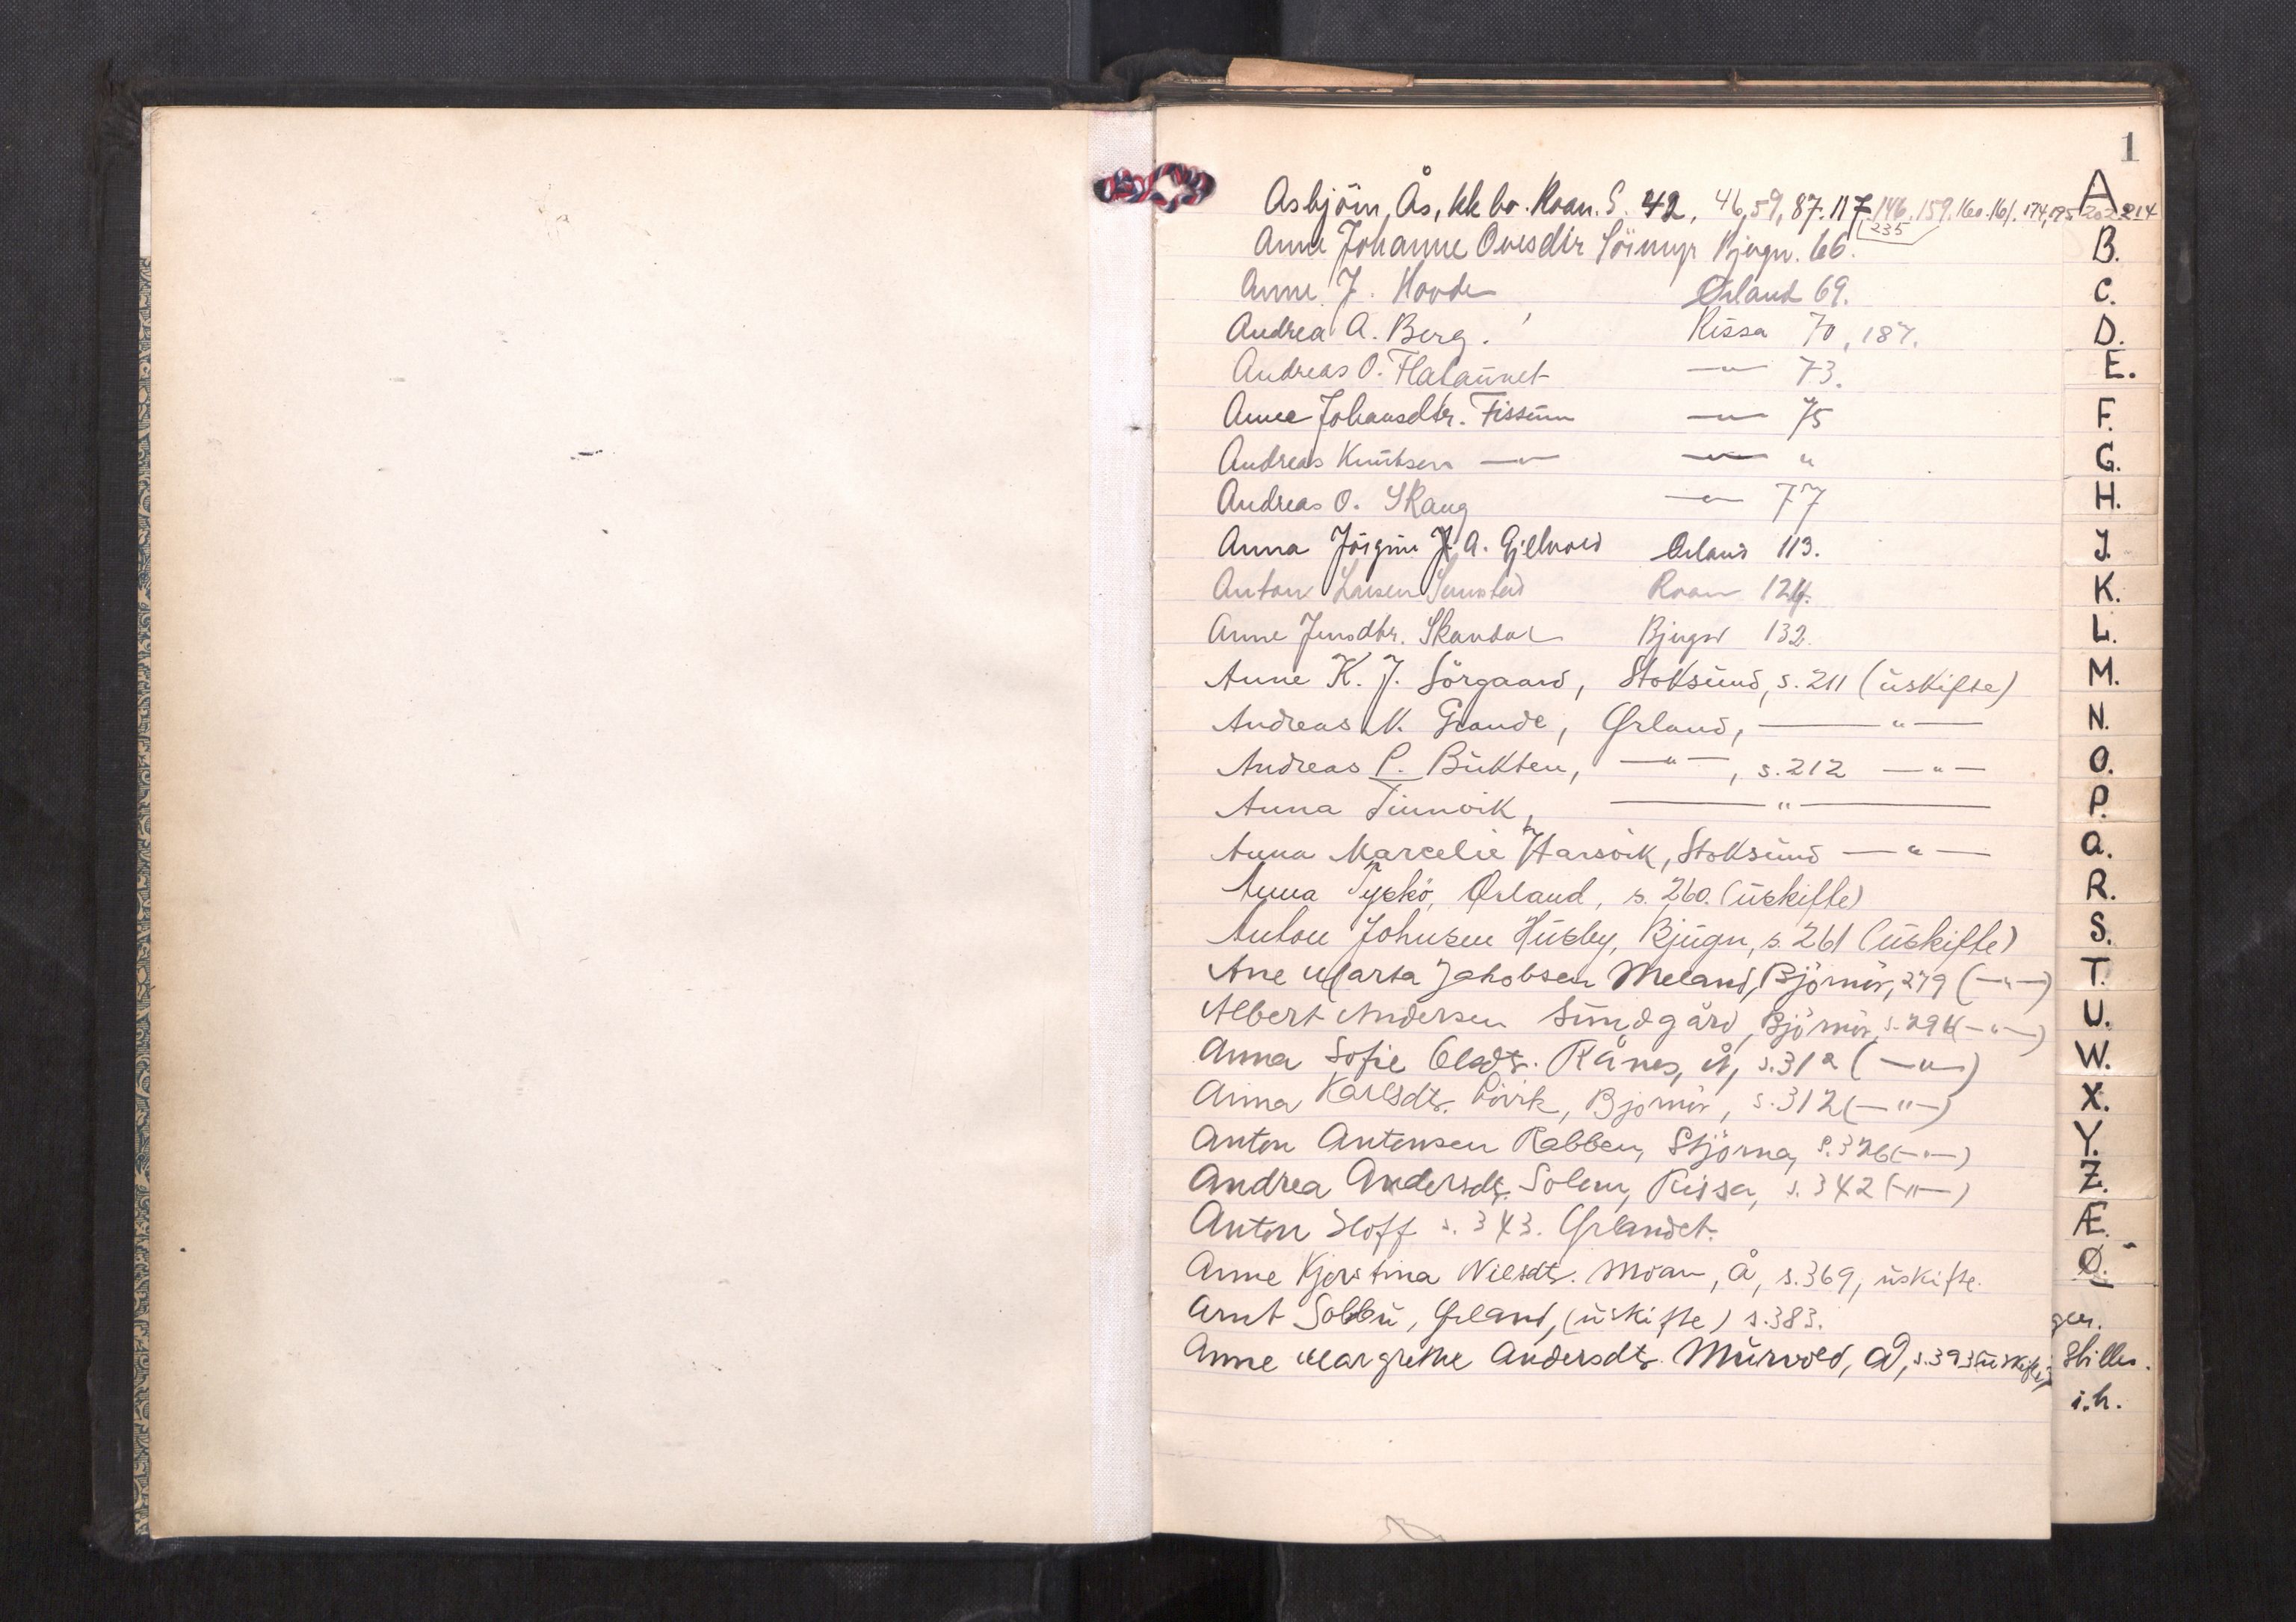 1
A
Asbjörn, Ås, kk bo. Roan. S. 42, 46, 59, 87. 117, 146. 159. 160. 161. 174, 195 202 214
235
Anne Johanne Ovesdtr Bjugn. 66.
B.
Anne J. Hovde Örland 69.
C.
Andrea A. Berg. Rissa 70, 187.
D.
Andreas O. Flataunet —"— 73.
E.
Anne Johansdtr. Fissum —"— 75
F.
Andreas Knutsen —"— —"— "
G.
Andreas O. Skaug —"— 77
H.
Anna Jörgine J. A. Gjelvold Örland 113.
J.
Anton Larsen Sumstad Roan 124.
K.
Anne Jensdtr. Skandal Bjugn 132.
L.
Anne K. J. Sörgaard, Stoksund, s. 211 (uskifte)
M.
Andreas N. Grande, Ørland, —"—
N.
Andreas P. Bukten, —"—, s. 212 —"—
O.
Anna Tinnvik, —"—
P.
Anna Marcelie Harsvik, Stoksund —"—
Q.
Anna Tyskö, Ørland, s. 260. (uskifte)
R.
Anton Johnsen Husby, Bjugn, s. 261 (uskifte)
S.
Ane Marta Jakobsen Meland, Björnör, 279 (—"—)
T.
Albert Andersen Sundgård, Björnör, s. 294 (—"—)
U.
Anna Sofie Olsdtr. Rånes, Å, s. 312 (—"—)
W.
Anna Karlsdtr. Björnör, s. 312 (—"—)
X.
Anton Antonsen Rabben, Stjörna, s. 326 (—"—)
Y.
Andrea Andersdtr. Solem, Rissa, s. 342 (—"—)
Z.
Anton Hoff s. 343. Ørlandet.
Æ.
Anne Kjerstina Nilsdtr. Moan, Å, s. 369, uskifte.
Ø.
Arnt Solbu, Ørland, (uskifte) s. 383.
ger.
Anne Margrethe Andersdtr. Murvold, Å, s. 393 (uskifte)
Stilles.
i.h.